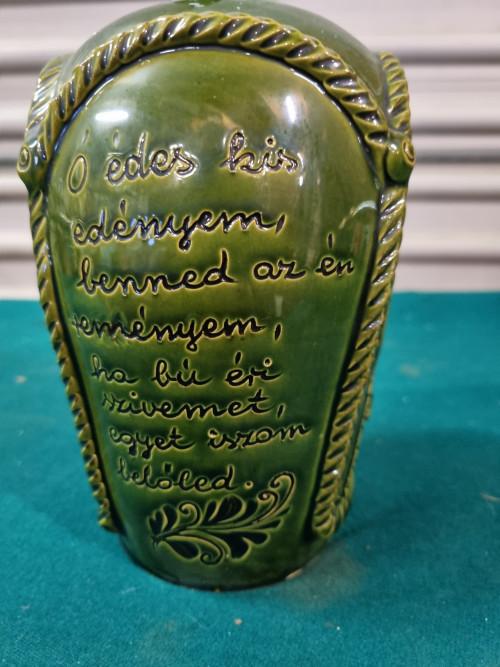 Ó édes kis
edényem,
benned az én
reményem,
ha bú éri
szivemet,
egyet iszom
belőled.